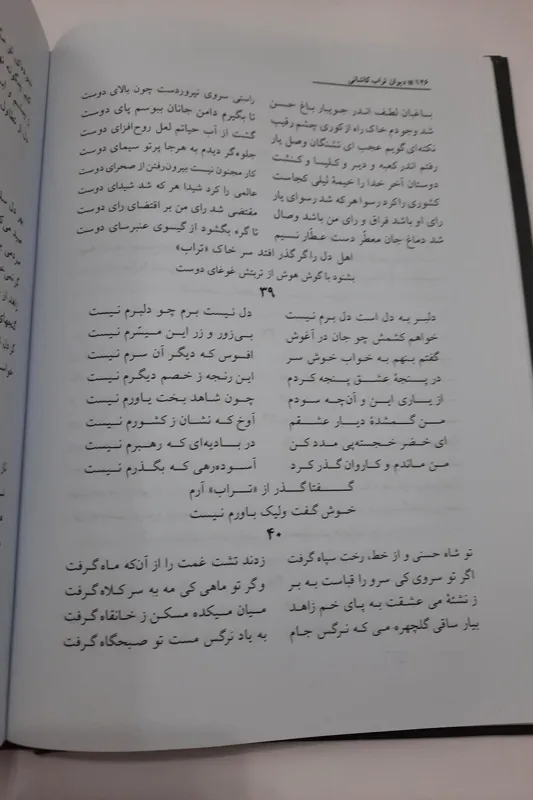 ۱۴۶ * دیوان تراب کاشانی
باغبان لطف اندر جویبار باغ حسن راستی سروی نپروردست چون بالای دوست
شد وجودم خاک راه از کوری چشم رقیب تا بگیرم دامن جانان ببوسم پای دوست
نکته‌ای گویم عجب ای تشنگان وصل یار گشت از آب حیاتم لعل روح‌افزای دوست
رفتم اندر کعبه و دیر و کلیسا و کنشت جلوه‌گر دیدم به هرجا پرتو سیمای دوست
دوستان آخر خدا را خیمهٔ لیلی کجاست کار مجنون نیست بیرون رفتن از صحرای دوست
کشوری را کرد رسوا هر که شد رسوای یار عالمی را کرد شیدا هر که شد شیدای دوست
رای او باشد فراق و رای من باشد وصال مقتضی شد رای من بر اقتضای رای دوست
شد دماغ جان معطّر دست عطّار نسیم تا گره بگشود از گیسوی عنبرسای دوست
اهل دل را گر گذر افتد سر خاک «تراب»
بشنود با گوش هوش از تربتش غوغای دوست
۳۹
دلبر به دل است دل برم نیست دل نیست برم چو دلبرم نیست
خواهم کشمش چو جان در آغوش بی‌زور و زر این میسّرم نیست
گفتم بنهم به خواب خوش سر افسوس که دیگر آن سرم نیست
در پنجهٔ عشق پنجه کردم این رنجه ز خصم دیگرم نیست
از یاری این و آن‌چه سودم چون شاهد بخت یاورم نیست
من گمشدهٔ دیار عشقم آوخ که نشان ز کشورم نیست
ای خضر خجسته‌پی مدد کن در بادیه‌ای که رهبرم نیست
من ماندم و کاروان گذر کرد آسوده‌رهی که بگذرم نیست
گفتا گذر از «تراب» آرم
خوش گفت ولیک باورم نیست
۴۰
تو شاه حسنی و از خط، رخت سپاه گرفت زدند تشت غمت را از آن‌که ماه گرفت
اگر تو سروی کی سرو را قباست به بر وگر تو ماهی کی مه به سر کلاه گرفت
ز نشئهٔ می عشقت به پای خم زاهد میان میکده مسکن ز خانقاه گرفت
بیار ساقی گلچهره می که نرگس جام به یاد نرگس مست تو صبحگاه گرفت